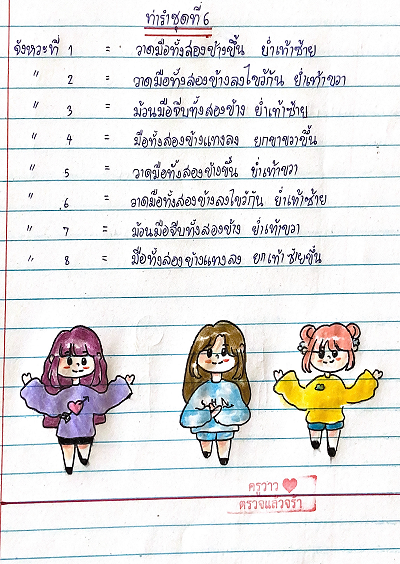 ท่ารำชุดที่ 6
จังหวะที่ 1 = วาดมือทั้งสองข้างขึ้น ย่ำเท้าซ้าย
" 2 = วาดมือทั้งสองข้างลงไขว้กัน ย่ำเท้าขวา
" 3 = ม้วนมือจีบทั้งสองข้าง ย่ำเท้าซ้าย
" 4 = มือทั้งสองข้างแทงลง ยกขาขวาขึ้น
" 5 = วาดมือทั้งสองข้างขึ้น ย่ำเท้าขวา
" 6 = วาดมือทั้งสองข้างลงไขว้กัน ย่ำเท้าซ้าย
" 7 = ม้วนมือจีบทั้งสองข้าง ย่ำเท้าขวา
" 8 = มือทั้งสองข้างแทงลง ยกเท้าซ้ายขึ้น
ครูวาว
ตรวจแล้วจร้า